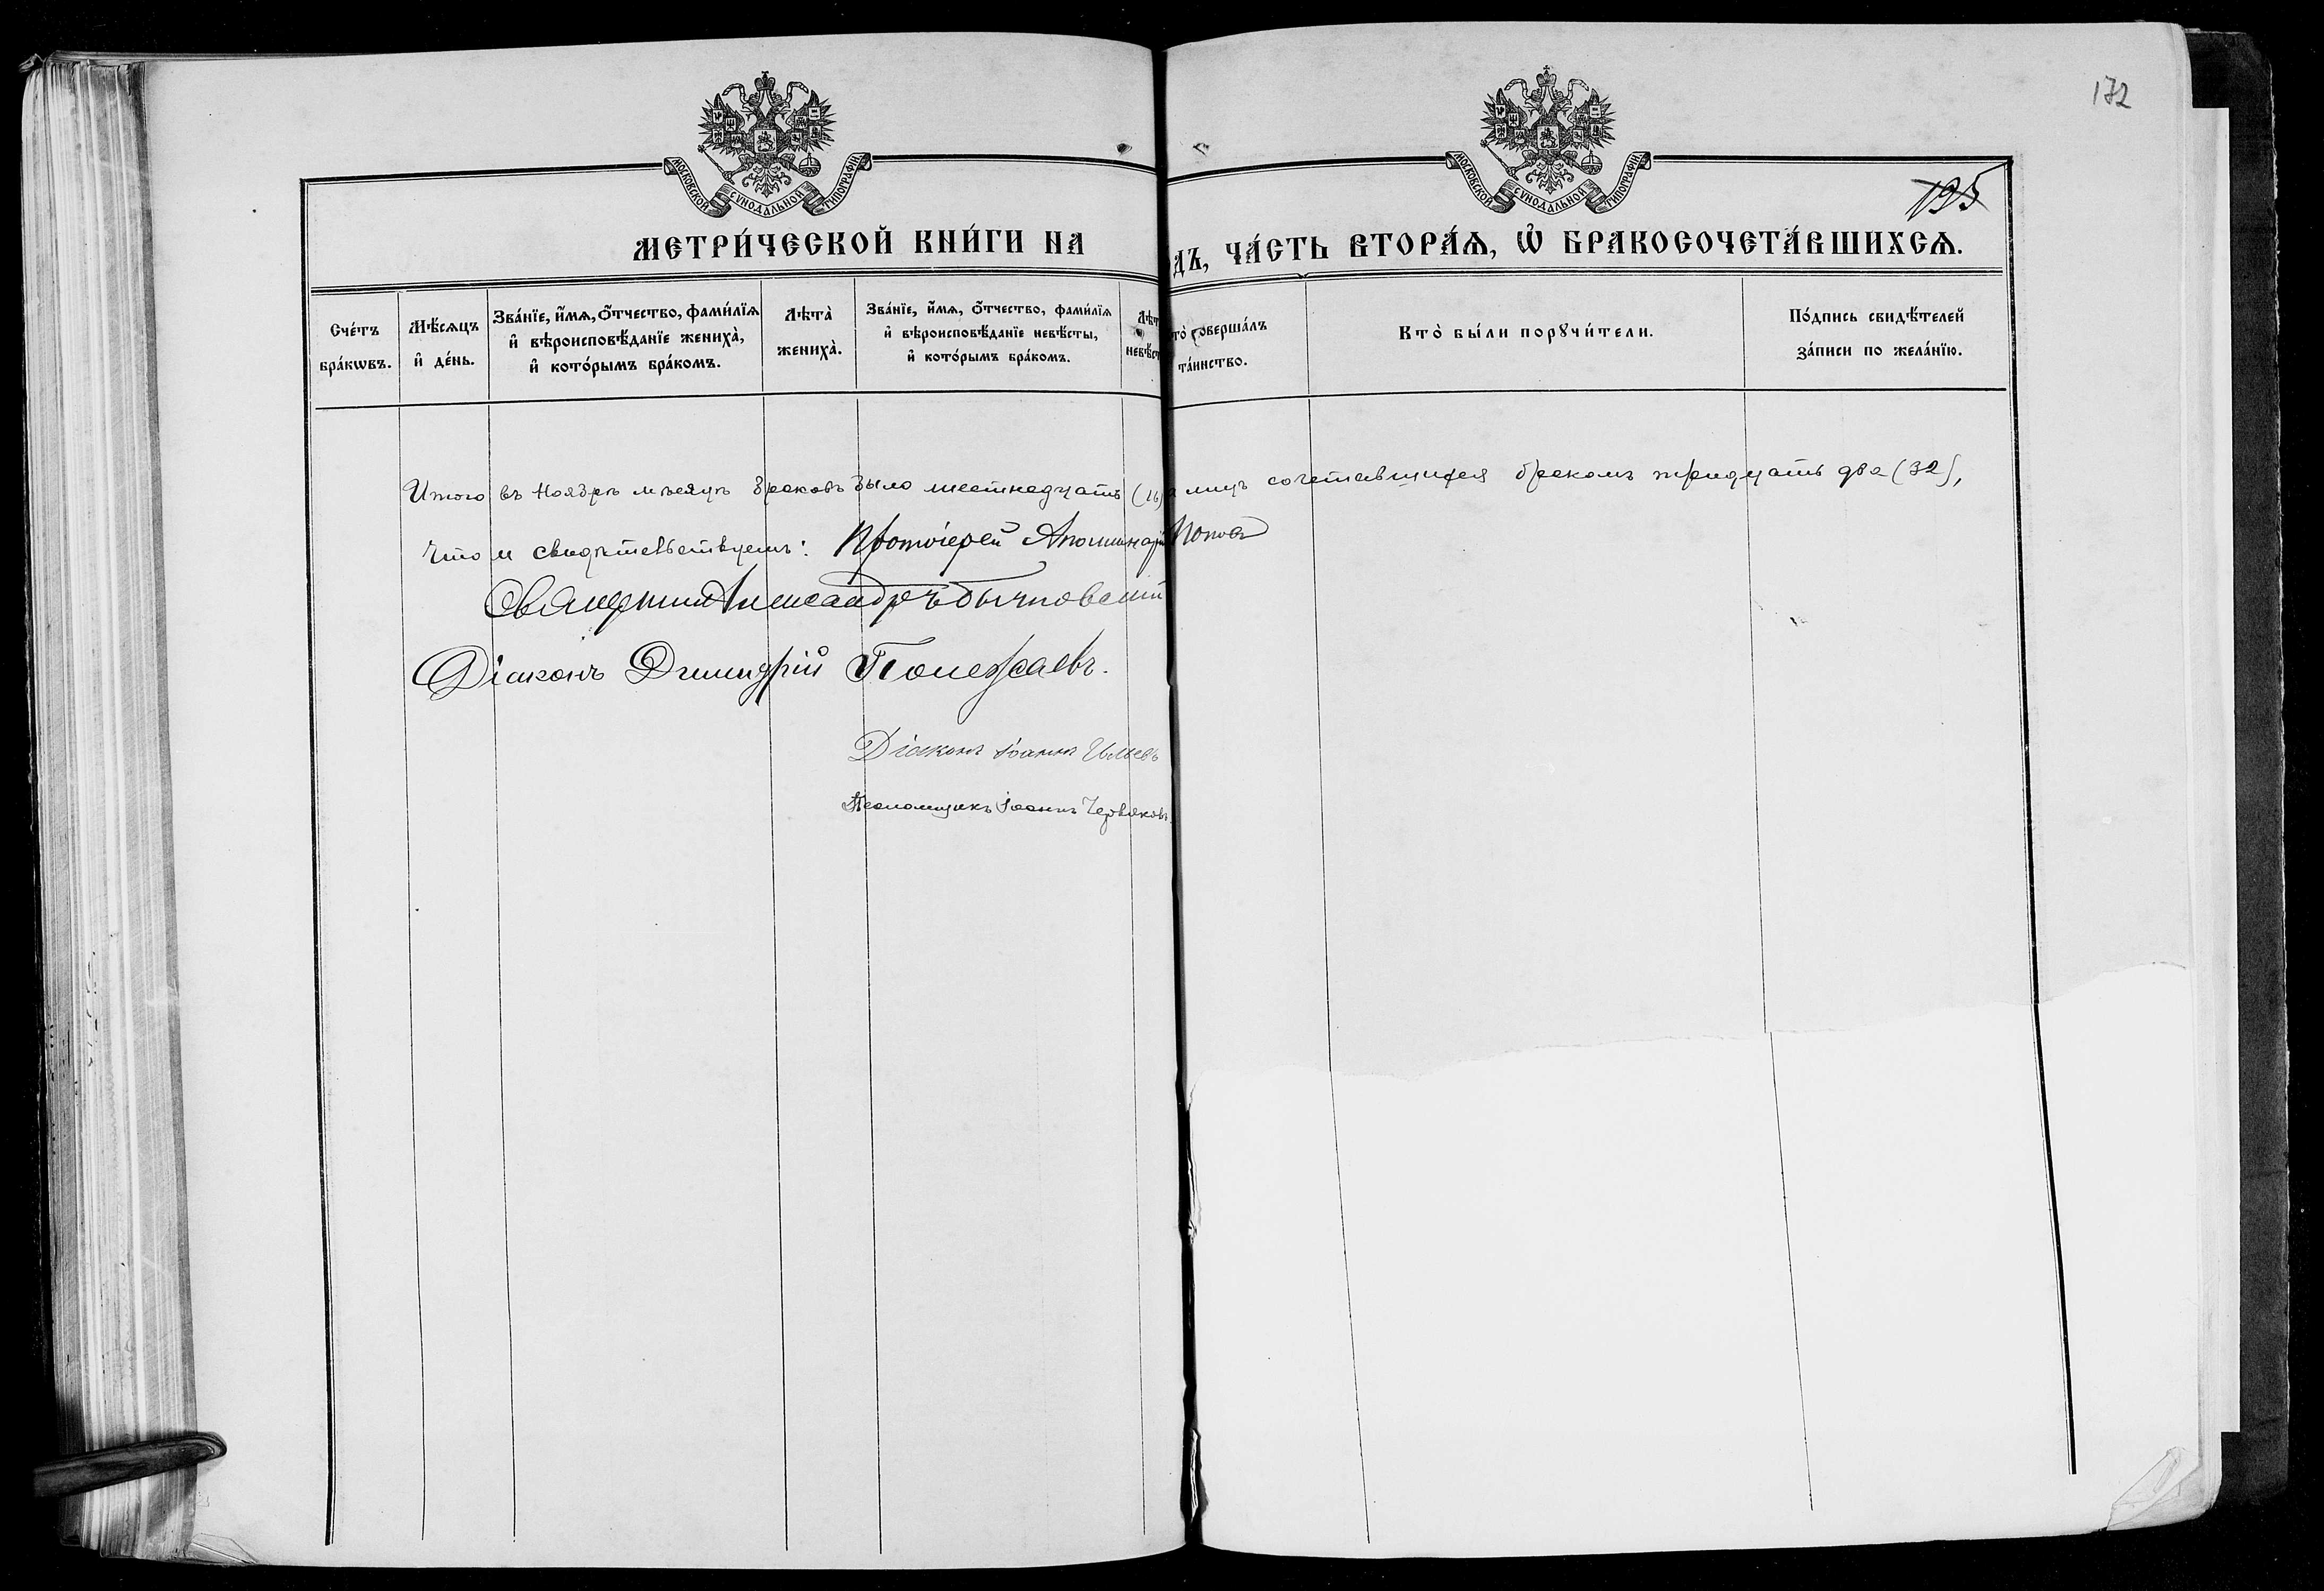 172
195
МОСКОВСКОЙ СѴНОДАЛЬНОЙ ТИПОГРАФІИ
МОСКОВСКОЙ СѴНОДАЛЬНОЙ ТИПОГРАФІИ
МЕТРИ́ЧЕСКОЙ КНИ́ГИ НА
ДЪ, ЧА́СТЬ ВТОРА́Ѧ, Ѿ БРАКОСОЧЕТА́ВШИХСѦ.
Сче́тъ бра́кѡвъ.
Мѣ́сѧцъ и҆ де́нь.
Зва́нїе, и҆́мѧ, ѻ҆́тчество, фами́лїѧ и҆ вѣроисповѣ́данїе жениха̀, и҆ кото́рымъ бра́комъ.
Лѣта̀ жениха̀.
Зва́нїе, и҆́мѧ, ѻ҆́тчество, фами́лїѧ и҆ вѣроисповѣ́данїе невѣ́сты, и҆ кото́рымъ бра́комъ.
Лѣт невѣ́ст
то̀ соверша́лъ та́инство.
Кто̀ бы́ли порꙋчи́тели.
По́дпись свидѣ́телей за́писи по жела́нїю.
Итого въ Ноябрѣ мѣсяцѣ браковъ было шестнадцать (16) а лицъ сочетавшихся бракомъ тридцать два (32),
что и свидѣтельствуемъ: Протоіерей Аполлинарій Поповъ
Священникъ Александръ
Діаконъ Димитрій Полежаевъ.
Діаконъ Іоаннъ
Псаломщикъ Іоаннъ Червяковъ.